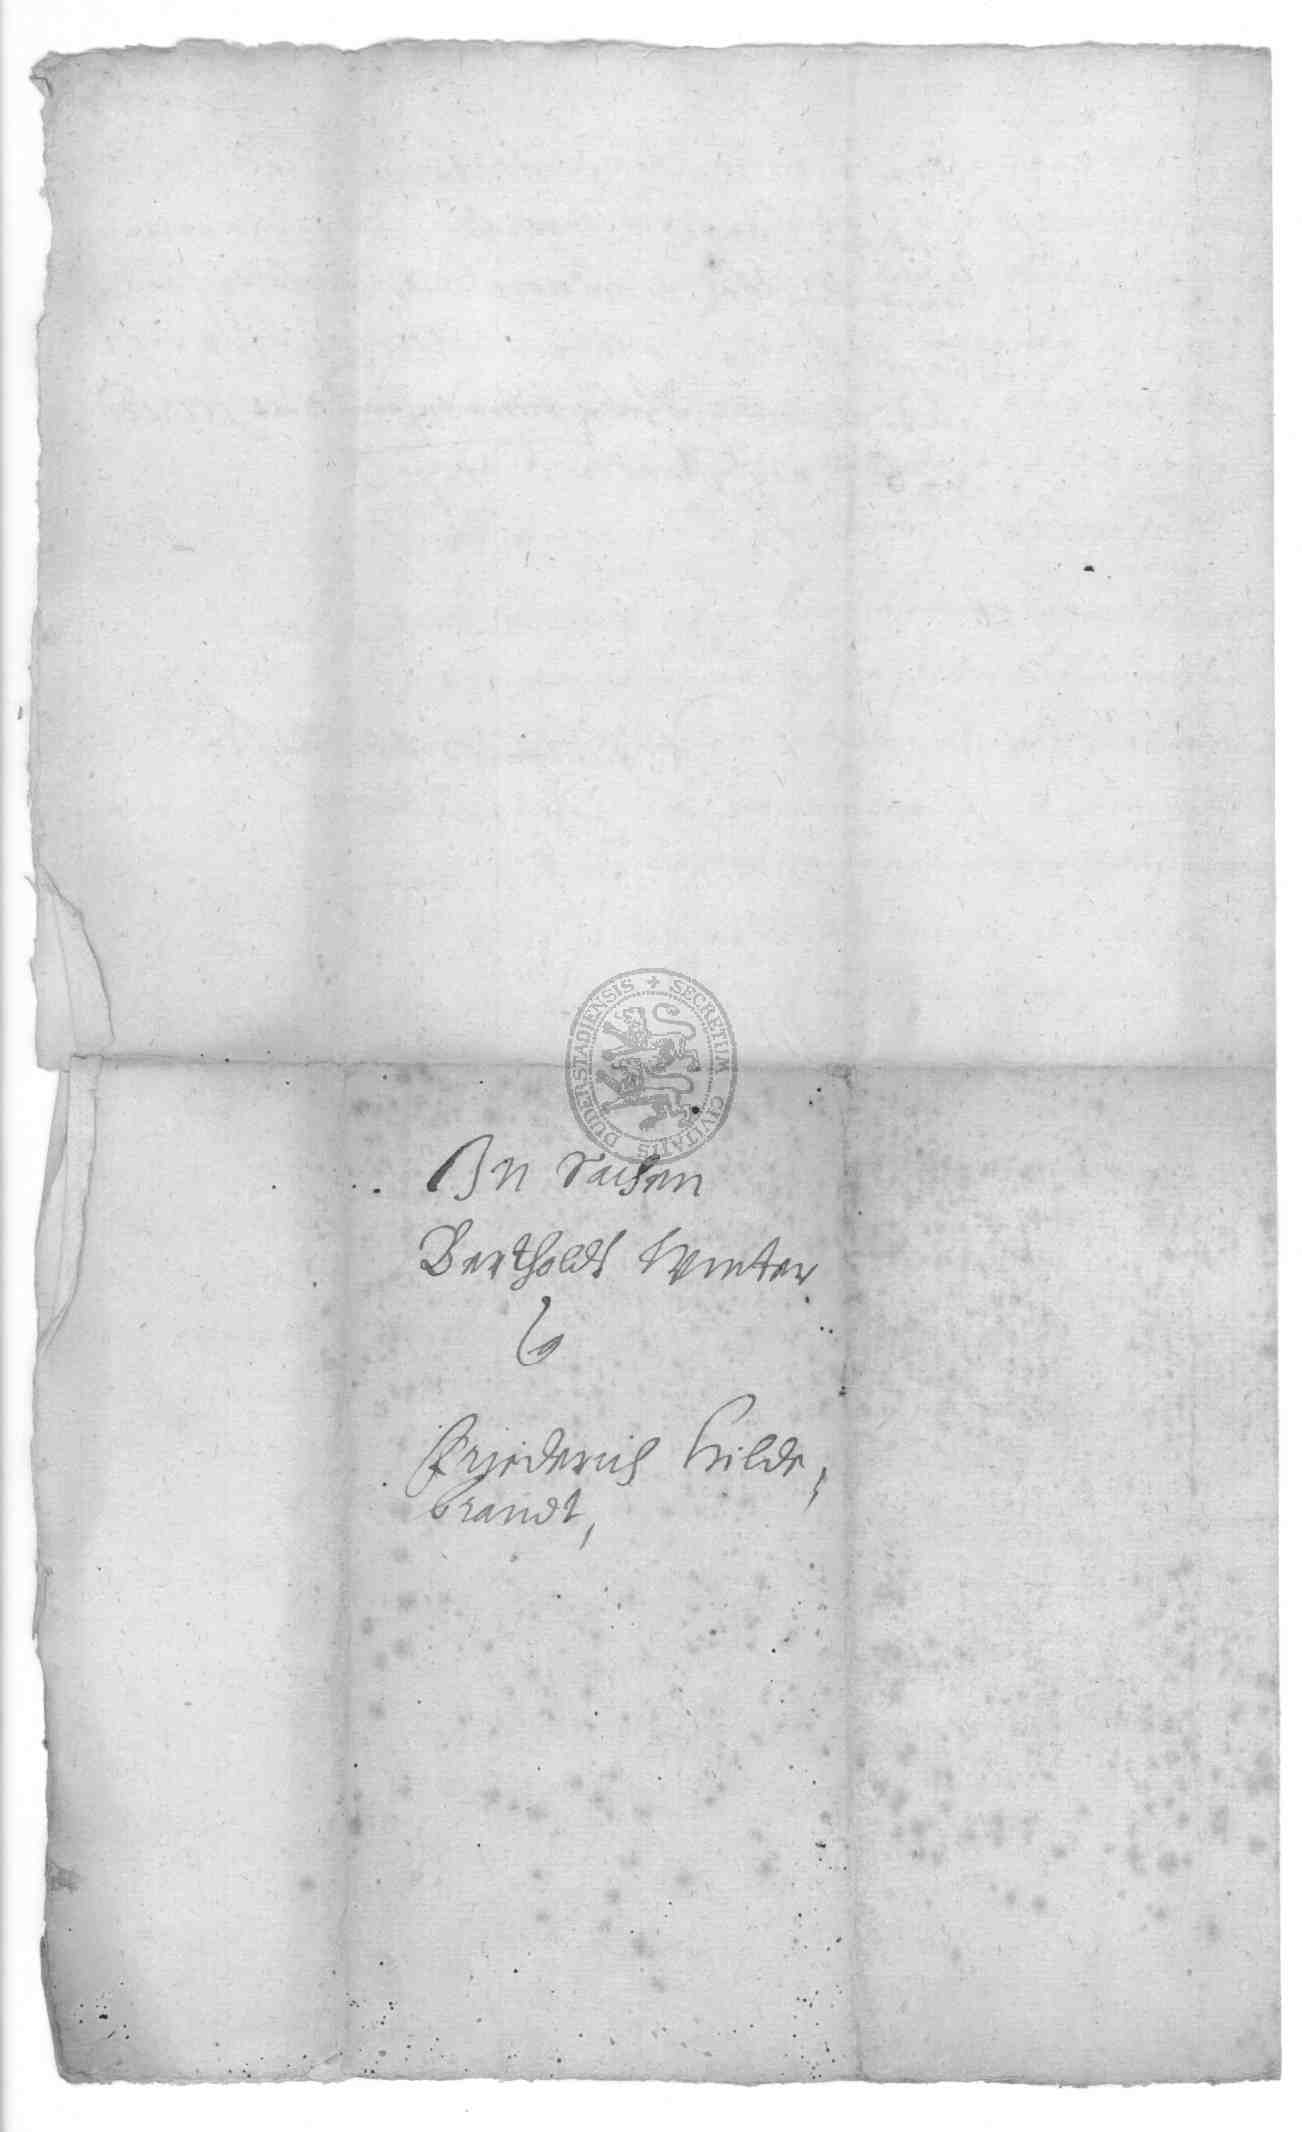 SECRETUM CIVITATIS DUDERSTADIENSIS
In sachen
Bertholdt Winter
Friederich Hilde,
brandt,